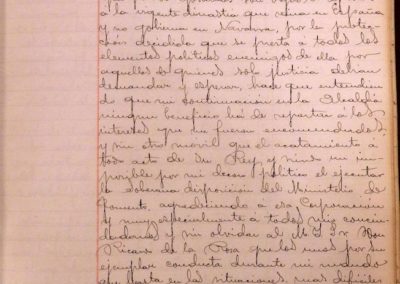 a la urgente dinastia que reina en España
y no gobierna en Navarra, por la protec-
ción decidida que se presta a todos los
elementos politicos enemigos de ella por
aquellos de quienes solo justicia debran
demandar y esperar, hace que entendien-
do que mi continuacion en la Alcaldia
ningun beneficio ha de reportar a los
intereses que me fueron encomendados,
y sin otro movil que el acatamiento a
todo acto de Su Rey, y siendo im-
posible por mi decoro politico el ejecutar
la soberana disposicion del Ministerio de
Fomento, agradeciendo a esa Corporacion
y muy especialmente a todos mis conciu-
dadanos y sin olvidar al M. I. Sr. Don
Ricardo de la Rosa que los unos por su
ejemplar conducta durante mi mando
que hasta en las situaciones mas dificiles